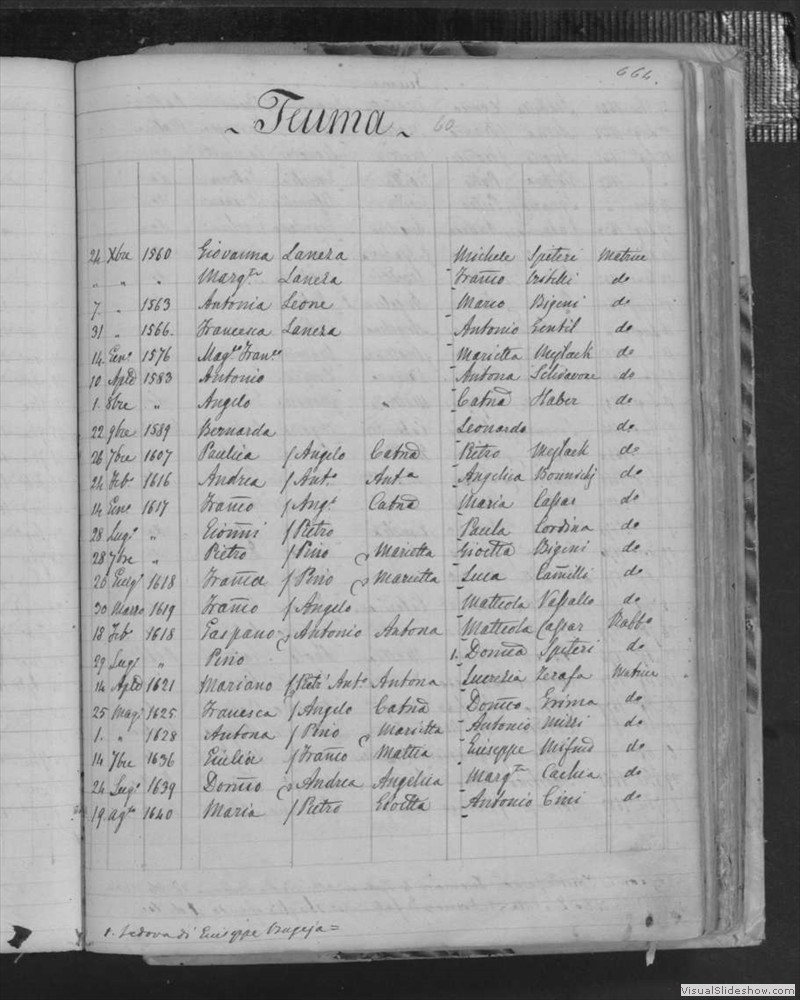 664.
~ Teuma ~ 60
24 Xbre 1560 Giovanna Lanera Michele Spiteri Matrice
" " " Margta Lanera Franco do
7 " 1563 Antonia Leone Marco Bigeni do
31 " 1566. Francesca Lanera Antonio Gentil do
14 Genro 1576 Magco Franco Marietta Meylack do
10 Aple 1583 Antonio Antona Schiavone do
1. 8bre " Angelo " Catna Haber do
22 9bre 1589 Bernarda Leonardo do
26 7bre 1607 Paulica f Angelo Catna Pietro Meylack do
24 Feb 1616 Andrea f Anto Anta Angelica do
14 Genro 1617 Franco f Angо Catna Maria Cassar do
28 Lugo " Gionni f Pietro Paula Cordina do
28 7bre " Pietro f Pino Marietta Gioetta Bigeni do
20 Giugo 1618 Franca f Pino Marietta Luca Camilli do
30 Marzo 1619 Franco f Angelo Matteola Vassallo do
18 Feb 1618 Gaspano Antonio Antona Matteola Cassar Rabbo
29 Lugo " Pino 1. Domca Spiteri do
14 Aple 1621 Mariano f Pietr' Anto Antona Lucrezia Zerafa Matrice
25 Mago 1625 Francesca f Angelo Catna Domco Grima do
1. " 1628 Antona f Pino Marietta Antonio Mizzi do
14 7bre 1636 Giulia f Franco Mattia Giuseppe Mifsud do
24 Lugo 1639 Domco Andrea Angelica Margta Cachia do
19 Agto 1640 Maria f Pietro Gioetta Antonio Cini do
1. Vedova di Giuseppe Bugeja =
VisualSlideshow.com